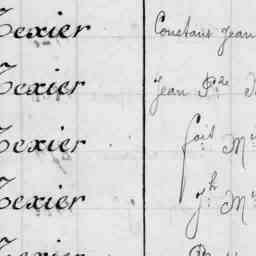 Texier Constans Jean
Texier Jean P.re
Texier fois M
Texier J.h M
Texier